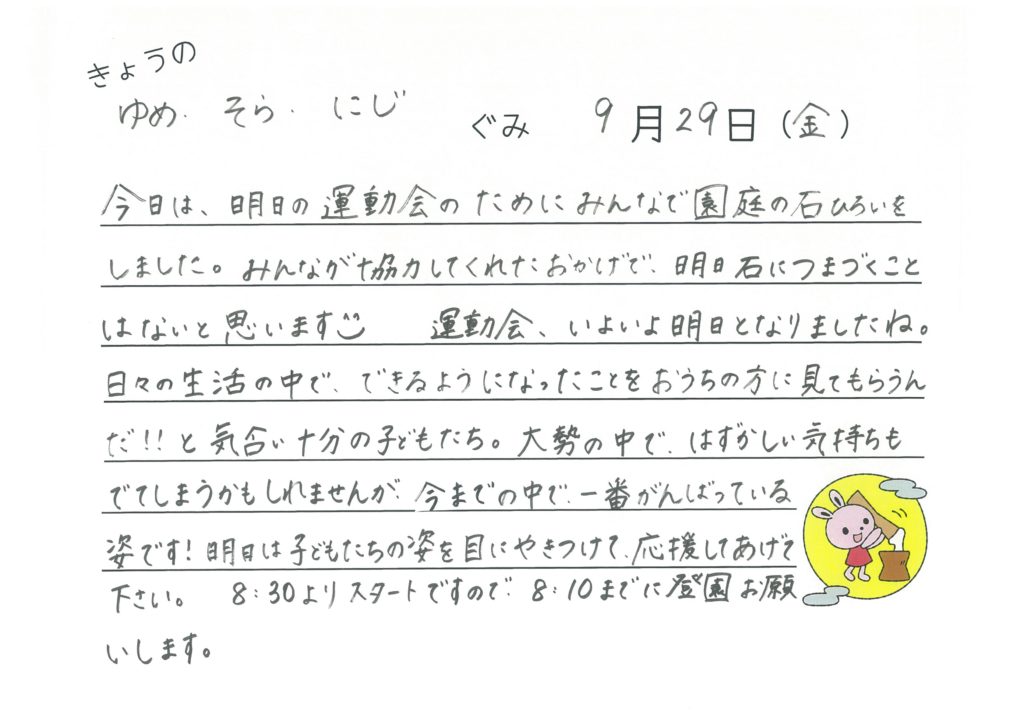 きょうの
ゆめ・そら・にじ ぐみ 9月29日(金)
今日は、明日の運動会のためにみんなで園庭の石ひろいを
しました。みんなが協力してくれたおかげで、明日石につまづくこと
はないと思います 運動会、いよいよ明日となりましたね。
日々の生活の中で、できるようになったことをおうちの方に見てもらうん
だ!!と気合い十分の子どもたち。大勢の中で、はずかしい気持ちも
でてしまうかもしれませんが、今までの中で、一番がんばっている
姿です!明日は子どもたちの姿を目にやきつけて、応援してあげて
下さい。 8:30よりスタートですので、8:10までに登園お願
いします。